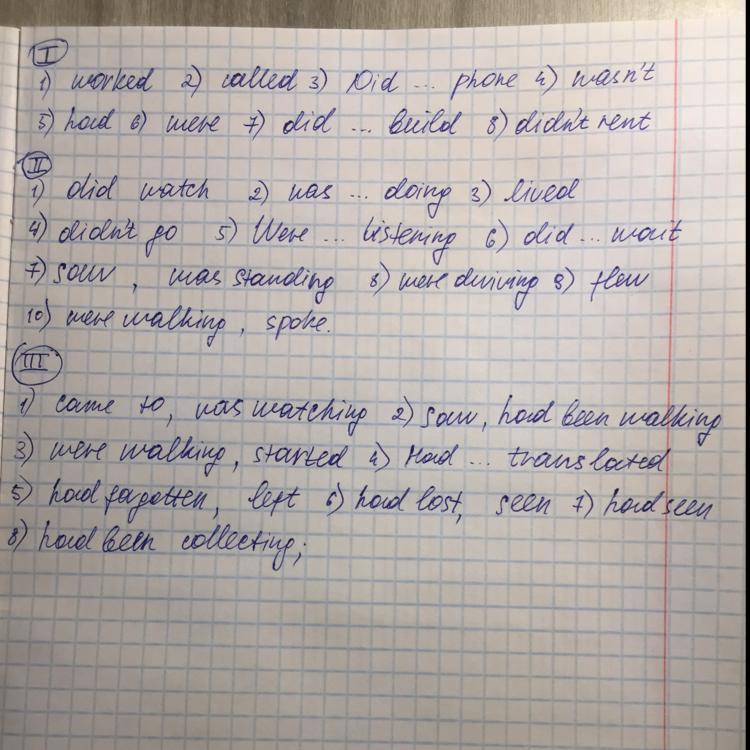 I
1) worked 2) called 3) Did ... phone 4) wasn't
5) had 6) were 7) did ... build 8) didn't rent
II
1) did watch 2) was ... doing 3) lived
4) didn't go 5) Were ... listening 6) did ... wait
7) saw, was standing 8) were driving 9) flew
10) were walking, spoke.
III
1) came to, was watching 2) saw, had been walking
3) were walking, started 4) Had ... translated
5) had forgotten, left 6) had lost, seen 7) had seen
8) had been collecting;